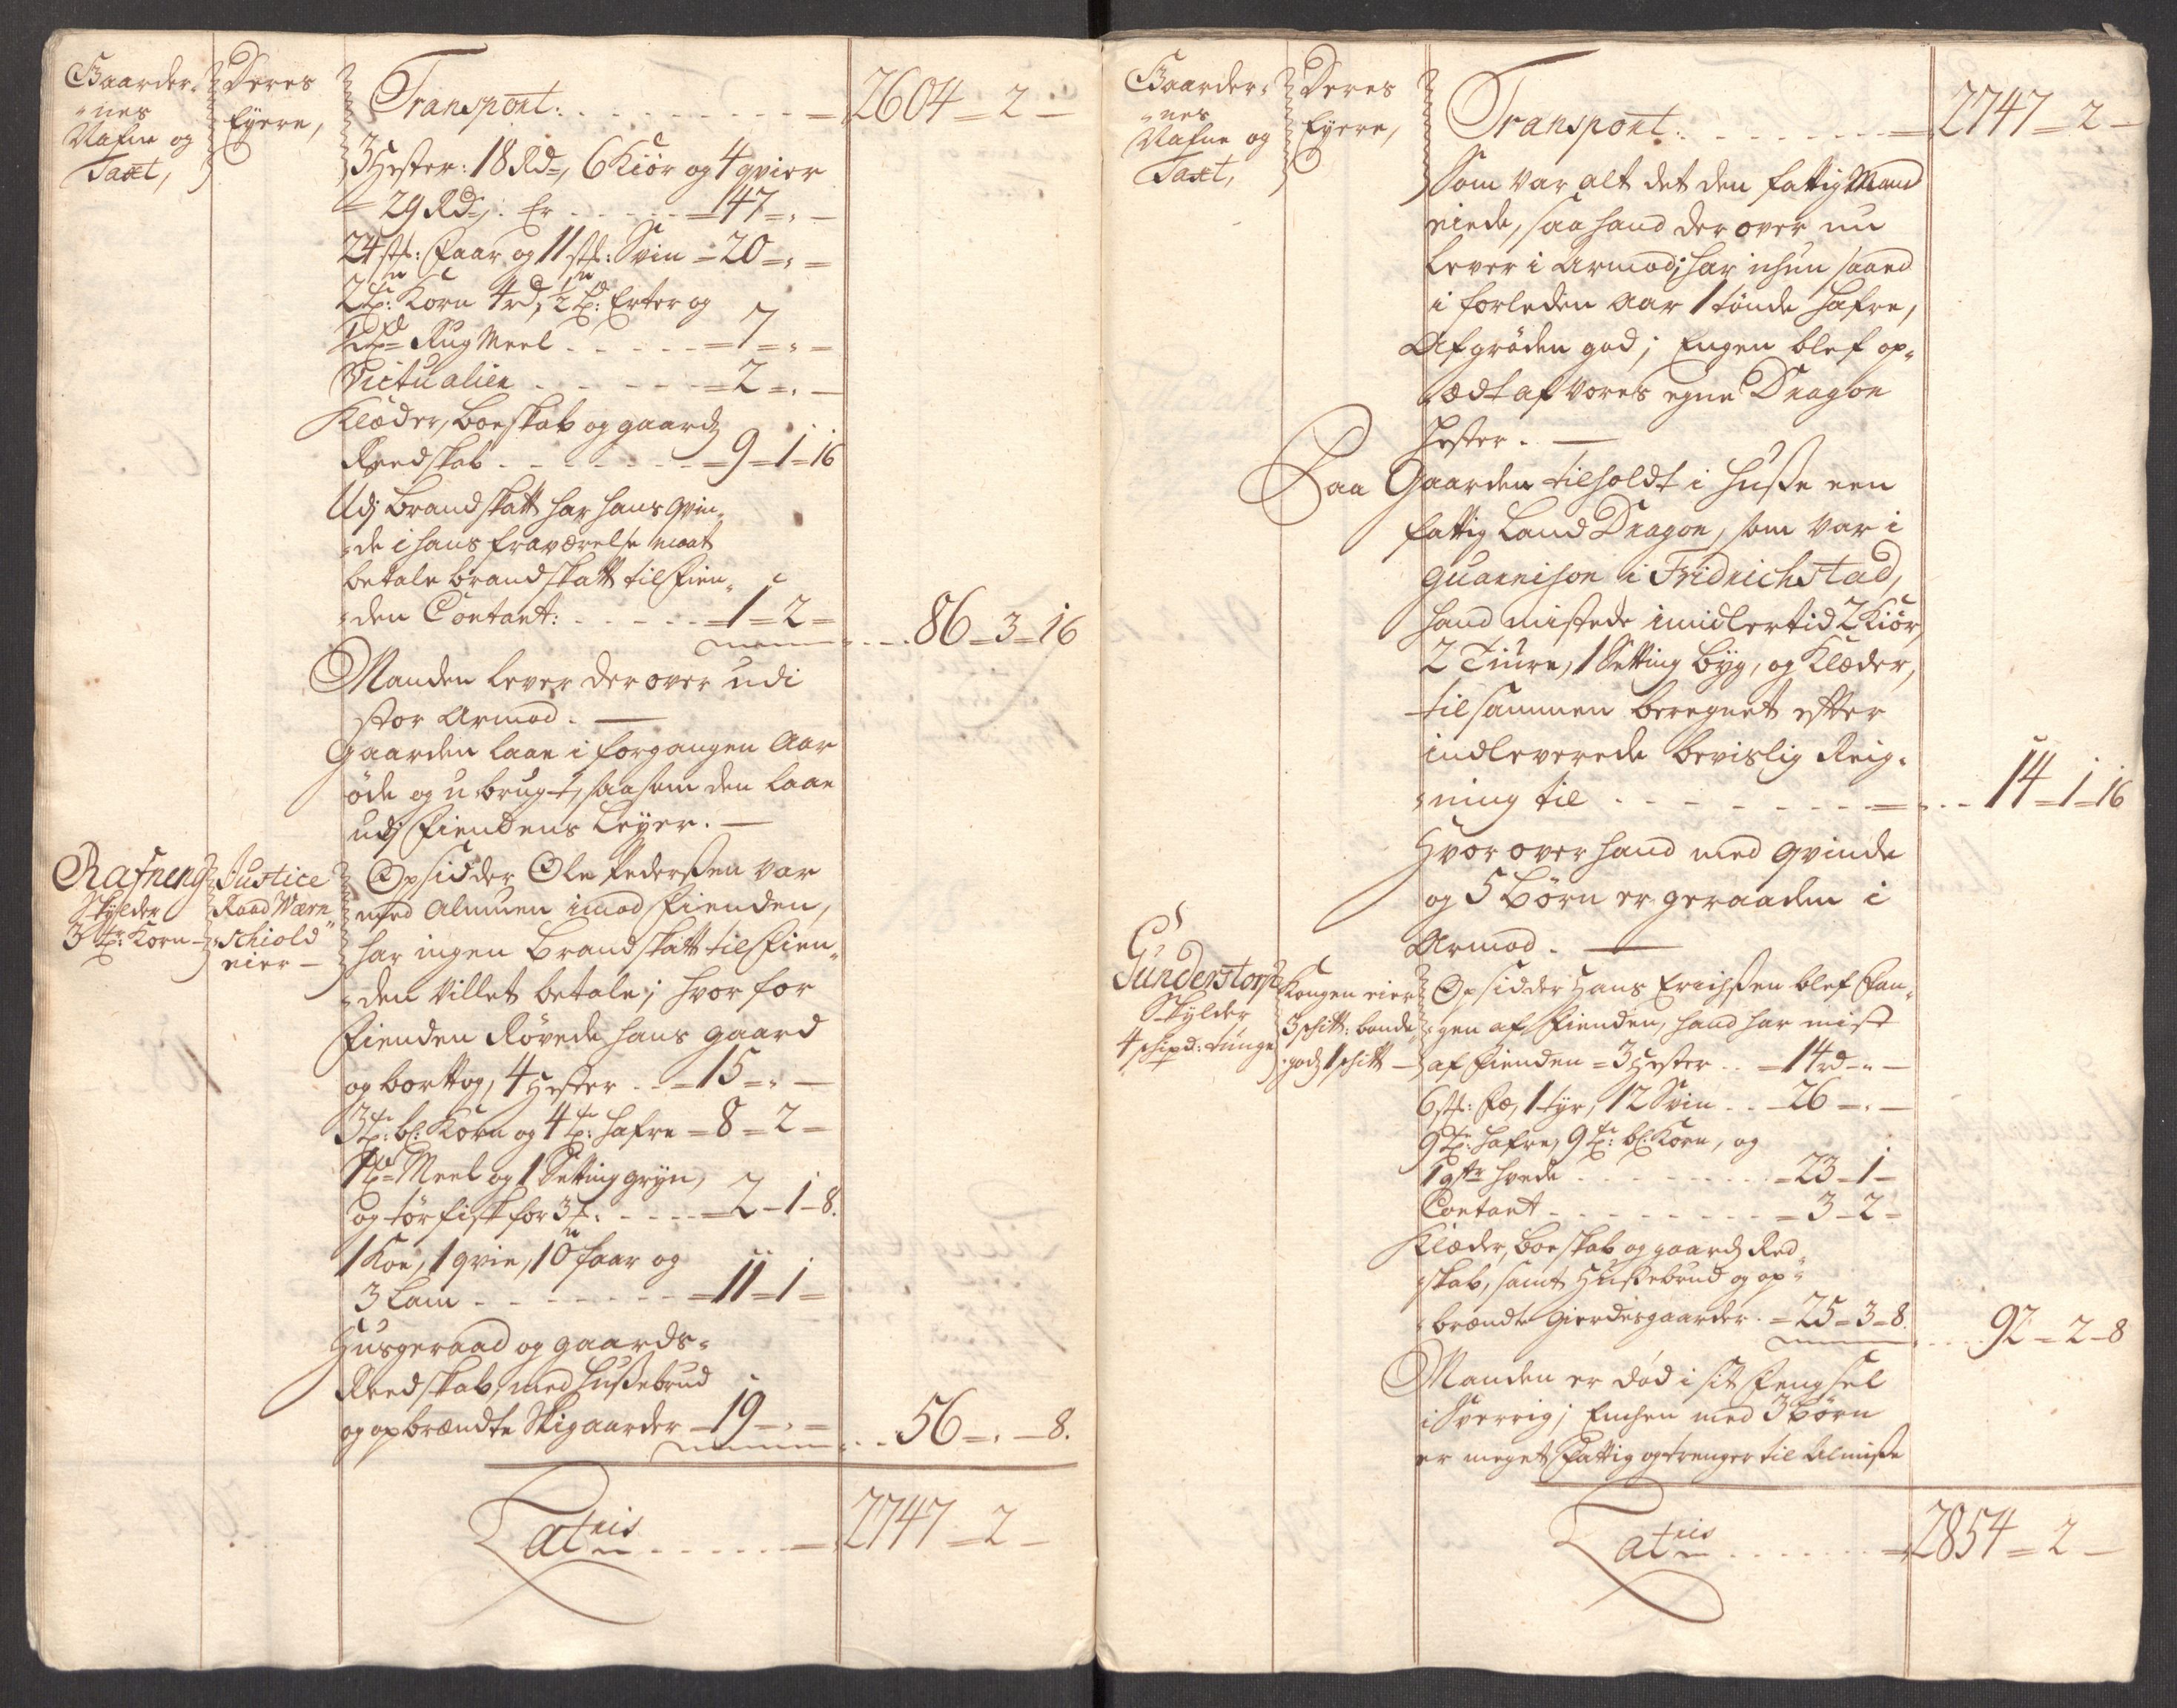 Gaarder-
nes
Nafne og
Taxt,
Deres
Eyere,
Transport: - - - - - - - = 2604 = 2 -
3 Hester: 18 Rd=, 6 Kiör og 4 qvier
= 29 Rd=, Er - - - - = 47 = „ -
24 stk: Faar og 11 stk: Svin = 20 = „ =
2 tr: Korn 4 rd, ½ tr: Erter og
½ tr= Rug Meel - - - - = 7 = „ =
Victualier - - - - - = 2 = „ -
Klæder, boeskab og gaardz
Reedskab - - - - - - = 9 = 1 = 16
Udj brandskatt har hans qvin-
-de i hans fraværelse maat
betale brandskatt til Fien-
-den Contant: - - - - - 1 = 2 =
- - 86 = 3 = 16
Manden lever der over udi
stor Armod. —
Gaarden laae i forgangen Aar
öde og u brugt, saasom den laae
udj Fiendens Leyer. —
Rafneng
Skylder
3 tr: Korn -
Justice
Raad Wærn
-schiold
eier -
Opsidder Ole Pederßen var
med Almuen imod Fienden,
har ingen Brandskatt til Fien-
-den villet betale; hvor for
Fienden Rövede hans gaard
og borttog, 4 Hester - - = 15 = „ -
3 tr: bl: Korn og 4 tr: Hafre = 8 = 2 =
1 tr= Meel og 1 Setting gryn,
og tör fisk for 3 - - - - = 2 - 1 - 8.
1 Koe, 1 qvie, 10 Faar og
3 Lam - - - - - - - = 11 = 1 =
Husgeraad og gaards-
Reedskab, med Hußebrud
og opbrændte Skigaarder = 19 = „ =
- - 56 = „ - 8.
Lateris - - - - - = 2747 = 2 -
Gaarder-
nes
Nafne og
Taxt,
Deres
Eyere,
Transport: - - - - - - = 2747 = 2 -
Som var alt det den fattig Mand
eiede, saa hand der over nu
lever i Armod; har ichun saaed
i forleden Aar 1 tönde Hafre,
Afgröden god; Engen blef op-
-ædt af vores egne Dragon
Hester. —
Paa Gaarden tilholdt i Huße een
fattig Land Dragon, som var i
guarnison i Fridrichstad,
hand mistede imidlertid 2 Kiör,
2 Tiure, 1 Setting byg, og Klæder,
tilsammen beregnet efter
indleverede beviislig Reig-
-ning til - - - - - - - = - - 14 = 1 = 16
Hvor over hand med qvinde
og 5 börn er geraaden i
Armod. —
Gunderstorp
Skylder
4 schipd: tunge
Kongen eier
3 schitt: bonde
-godz 1 schitt -
Opsidder Hans Erichßen blef Fan-
-gen af Fienden, hand har mist
af Fienden = 3 Hester - - = 14 rd - „ -
6 stk: Fæ, 1 tyr, 12 Svin - - = 26 = „ -
9 tr: Hafre, 9 tr: bl: Korn, og
1 qtr hvede - - - - - - - = 23 = 1 -
Contant - - - - - - - - = 3 = 2 =
Klæder, boeskab og gaardz Red-
-skab, samt Hußebrud og op-
-brændte gierdesgaarder - = 25 = 3 = 8.
- - 92 = 2 = 8
Manden er död i sit Fengsel
i Sverrig; Enchen med 3 börn
er meget fattig og trenger til Almiße
Lateris - - - - - - = 2854 = 2 -